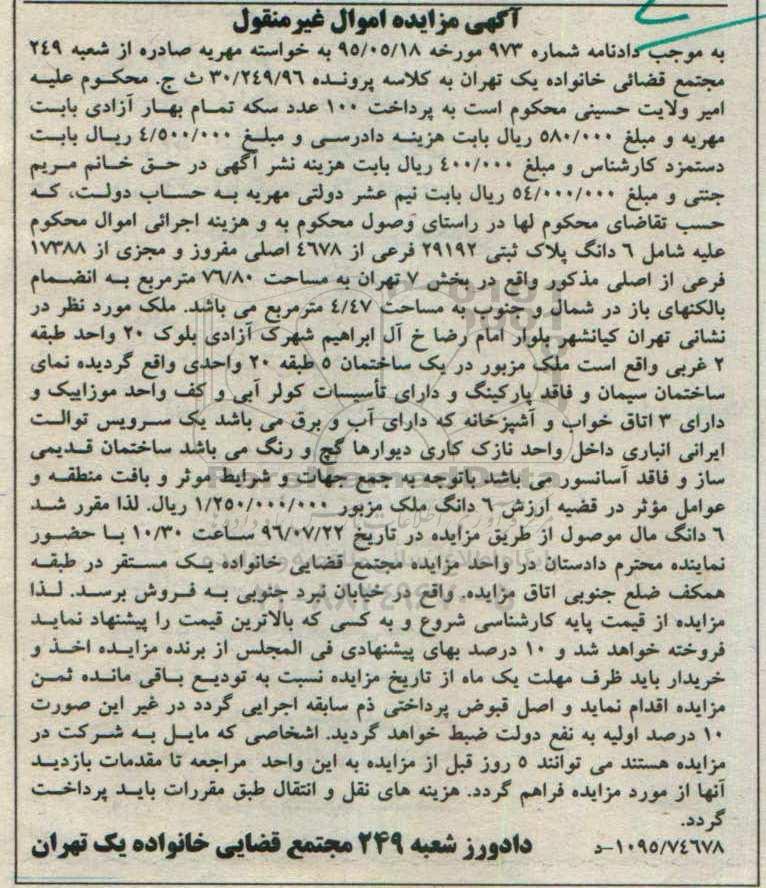 آگهی مزایده اموال غیرمنقول
به موجب دادنامه شماره ۹۷۳ مورخه ۹۵/۰۵/۱۸ به خواسته مهریه صادره از شعبه ۲۴۹
مجتمع قضائی خانواده یک تهران به کلاسه پرونده ۳۰/۲۴۹/۹۶ ث ج. محکوم علیه
امیر ولایت حسینی محکوم است به پرداخت ۱۰۰ عدد سکه تمام بهار آزادی بابت
مهریه و مبلغ ۵۸۰/۰۰۰ ریال بابت هزینه دادرسی و مبلغ ۴/۵۰۰/۰۰۰ ریال بابت
دستمزد کارشناس و مبلغ ۴۰۰/۰۰۰ ریال بابت هزینه نشر آگهی در حق خانم مریم
جنتی و مبلغ ۵۴/۰۰۰/۰۰۰ ریال بابت نیم عشر دولتی مهریه به حساب دولت، که
حسب تقاضای محکوم لها در راستای وصول محکوم به و هزینه اجرائی اموال محکوم
علیه شامل ۶ دانگ پلاک ثبتی ۲۹۱۹۲ فرعی از ۴۶۷۸ اصلی مفروز و مجزی از ۱۷۳۸۸
فرعی از اصلی مذکور واقع در بخش ۷ تهران به مساحت ۷۶/۸۰ مترمربع به انضمام
بالکنهای باز در شمال و جنوب به مساحت ۴/۴۷ مترمربع می باشد. ملک مورد نظر در
نشانی تهران کیانشهر بلوار امام رضا خ آل ابراهیم شهرک آزادی بلوک ۲۰ واحد طبقه
۲ غربی واقع است ملک مزبور در یک ساختمان ۵ طبقه ۲۰ واحدی واقع گردیده نمای
ساختمان سیمان و فاقد پارکینگ و دارای تأسیسات کولر آبی و کف واحد موزاییک و
دارای ۳ اتاق خواب و آشپزخانه که دارای آب و برق می باشد یک سرویس توالت
ایرانی انباری داخل واحد نازک کاری دیوارها گچ و رنگ می باشد ساختمان قدیمی
ساز و فاقد آسانسور می باشد باتوجه به جمع جهات و شرایط موثر و بافت منطقه و
عوامل مؤثر در قضیه ارزش ۶ دانگ ملک مزبور ۱/۲۵۰/۰۰۰/۰۰۰ ریال. لذا مقرر شد
۶ دانگ مال موصول از طریق مزایده در تاریخ ۹۶/۰۷/۲۲ ساعت ۱۰/۳۰ با حضور
نماینده محترم دادستان در واحد مزایده مجتمع قضایی خانواده یک مستقر در طبقه
همکف ضلع جنوبی اتاق مزایده. واقع در خیابان نبرد جنوبی به فروش برسد. لذا
مزایده از قیمت پایه کارشناسی شروع و به کسی که بالاترین قیمت را پیشنهاد نماید
فروخته خواهد شد و ۱۰ درصد بهای پیشنهادی فی المجلس از برنده مزایده اخذ و
خریدار باید ظرف مهلت یک ماه از تاریخ مزایده نسبت به تودیع باقی مانده ثمن
مزایده اقدام نماید و اصل قبوض پرداختی ذم سابقه اجرایی گردد در غیر این صورت
۱۰ درصد اولیه به نفع دولت ضبط خواهد گردید. اشخاصی که مایل به شرکت در
مزایده هستند می توانند ۵ روز قبل از مزایده به این واحد مراجعه تا مقدمات بازدید
آنها از مورد مزایده فراهم گردد. هزینه های نقل و انتقال طبق مقررات باید پرداخت
گردد.
۱۰۹۵/۷۴۶۷۸-د دادورز شعبه ۲۴۹ مجتمع قضایی خانواده یک تهران
ParsNamadData